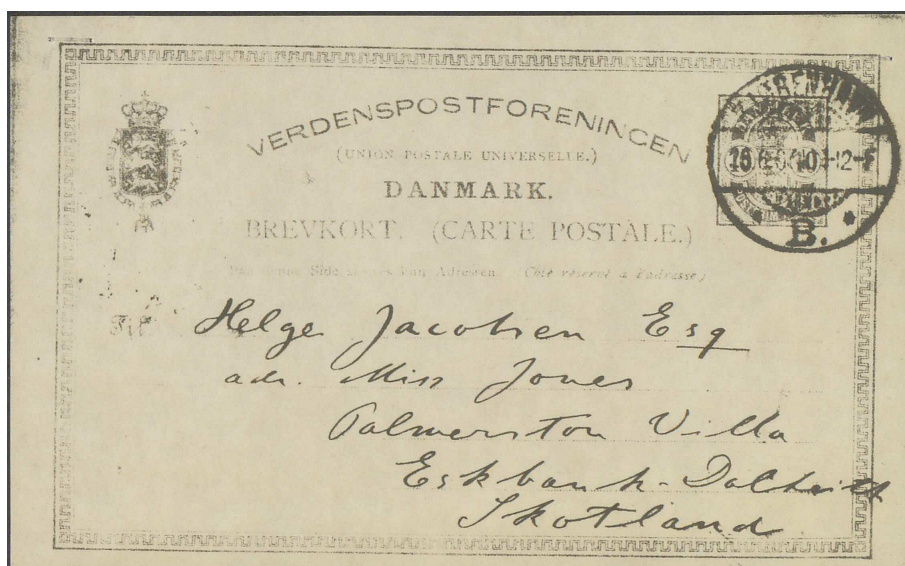 VERDENSPOSTFORENINGEN
(UNION POSTALE UNIVERSELLE.)
DANMARK.
BREVKORT. (CARTE POSTALE.)
Paa denne Side skrives kun Adressen. (Côté réservé à l'adresse.)
KJØBENHAVN
B.
Til
Helge Jacobsen Esq
adr. Miss Jones
Palmerston Villa
Eskbank-Dalkeith
Skotland